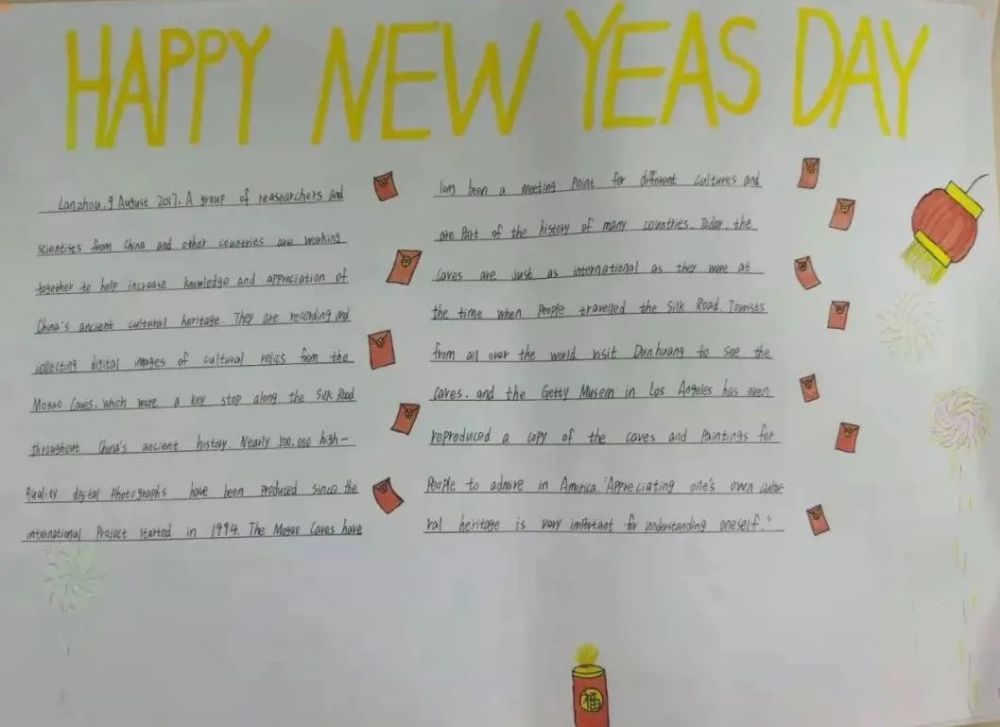 HAPPY NEW YEAS DAY
Lanzhou, 9 August 2017. A group of reasearchers and
scientists from China and other countries are working
together to help increase knowledge and appreciation of
China's ancient cultural heritage. They are recording and
collecting digital images of cultural relics from the
Mogao Caves, which were a key stop along the Silk Road
throughout China's ancient history. Nearly 100,000 high-
quality digital Photographs have been produced since the
international Project started in 1994. The Mogao Caves have
long been a meeting Point for different cultures and
are Part of the history of many countries. Today, the
Caves are just as international as they were at
the time when People travelled the Silk Road. Tourists
from all over the world visit Dunhuang to see the
Caves, and the Getty Musem in Los Angeles has even
reproduced a copy of the caves and Paintings for
People to admire in America. "Appreciating one's own cultu-
ral heritage is very important for understanding oneself."
福